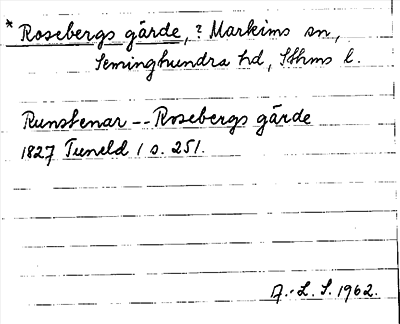 * Rosebergs gärde, ? Markims sn,
Seminghundra hd, Sthms l.
Runstenar -- Rosebergs gärde
1827 Tuneld 1 s. 251.
A.-L. S. 1962.